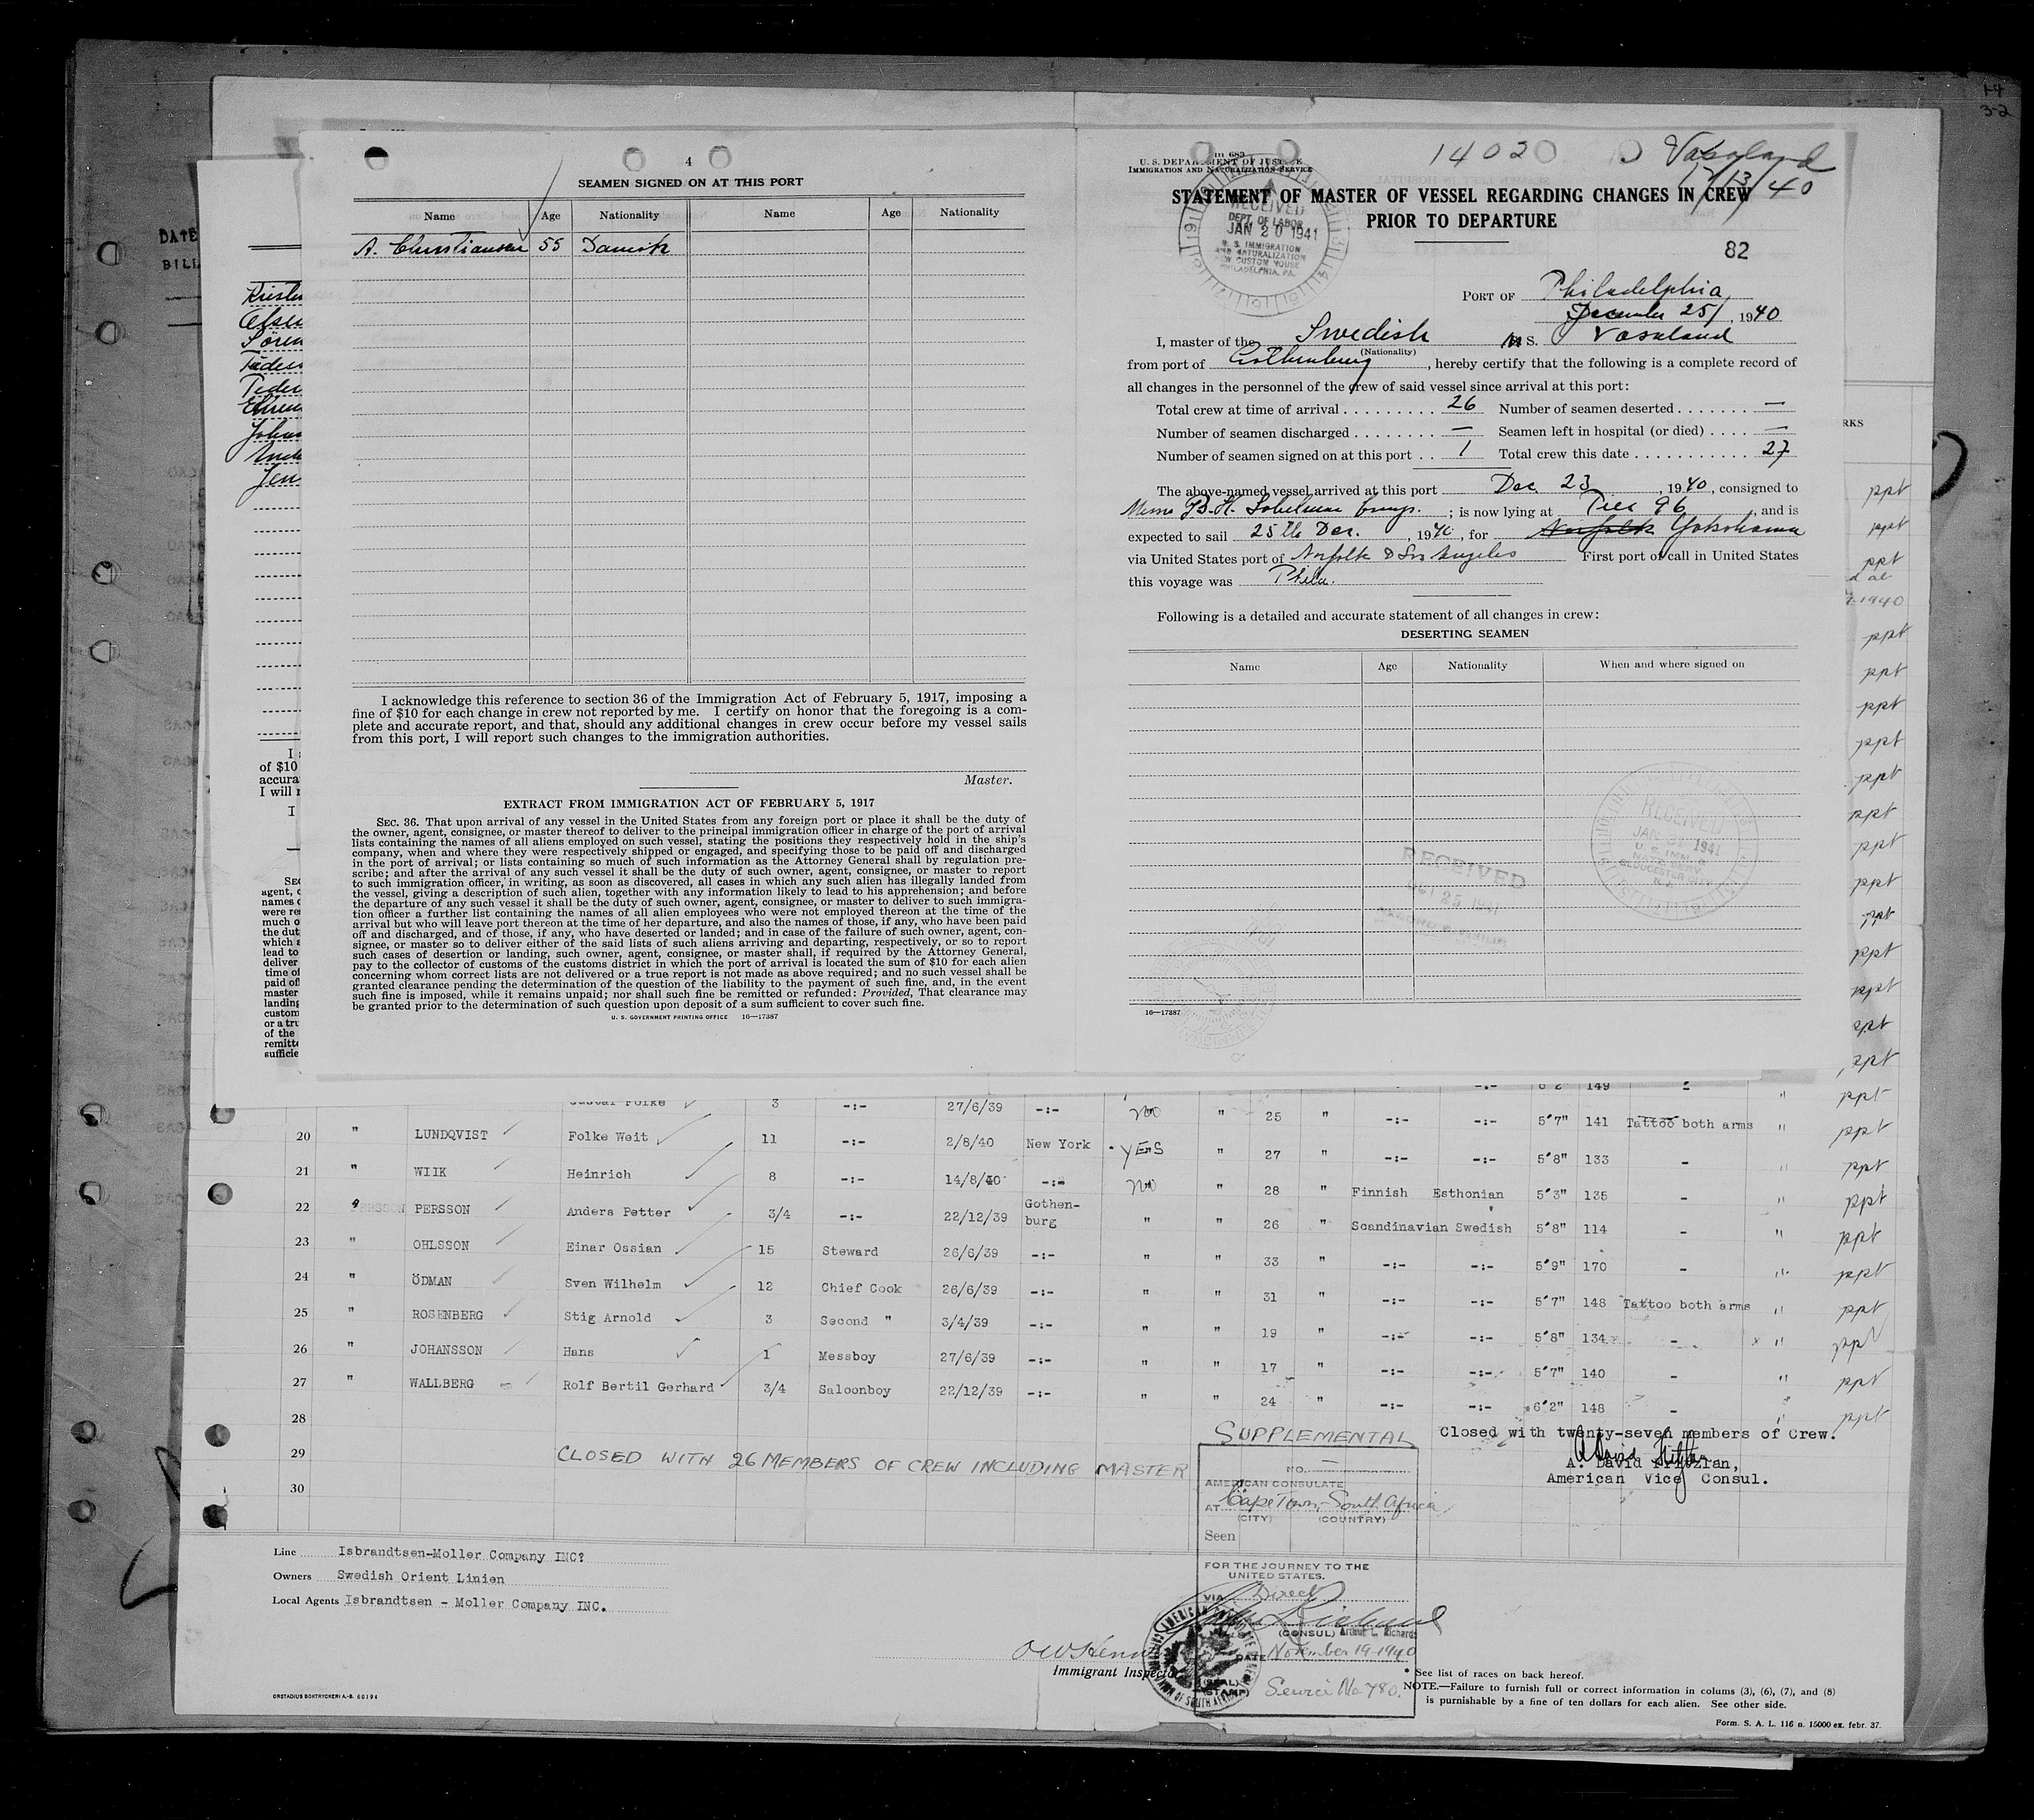 1-4
3-2
DATE
BILL
4
SEAMEN SIGNED ON AT THIS PORT
Name Age Nationality Name Age Nationality
A. Christiansen 55 Danish
I acknowledge this reference to section 36 of the Immigration Act of February 5, 1917, imposing a
fine of $10 for each change in crew not reported by me. I certify on honor that the foregoing is a com-
plete and accurate report, and that, should any additional changes in crew occur before my vessel sails
from this port, I will report such changes to the immigration authorities.
Master.
EXTRACT FROM IMMIGRATION ACT OF FEBRUARY 5, 1917
SEC. 36. That upon arrival of any vessel in the United States from any foreign port or place it shall be the duty of
the owner, agent, consignee, or master thereof to deliver to the principal immigration officer in charge of the port of arrival
lists containing the names of all aliens employed on such vessel, stating the positions they respectively hold in the ship's
company, when and where they were respectively shipped or engaged, and specifying those to be paid off and discharged
in the port of arrival; or lists containing so much of such information as the Attorney General shall by regulation pre-
scribe; and after the arrival of any such vessel it shall be the duty of such owner, agent, consignee, or master to report
to such immigration officer, in writing, as soon as discovered, all cases in which any such alien has illegally landed from
the vessel, giving a description of such alien, together with any information likely to lead to his apprehension; and before
the departure of any such vessel it shall be the duty of such owner, agent, consignee, or master to deliver to such immigra-
tion officer a further list containing the names of all alien employees who were not employed thereon at the time of the
arrival but who will leave port thereon at the time of her departure, and also the names of those, if any, who have been paid
off and discharged, and of those, if any, who have deserted or landed; and in case of the failure of such owner, agent, con-
signee, or master so to deliver either of the said lists of such aliens arriving and departing, respectively, or so to report
such cases of desertion or landing, such owner, agent, consignee, or master shall, if required by the Attorney General,
pay to the collector of customs of the customs district in which the port of arrival is located the sum of $10 for each alien
concerning whom correct lists are not delivered or a true report is not made as above required; and no such vessel shall be
granted clearance pending the determination of the question of the liability to the payment of such fine, and, in the event
such fine is imposed, while it remains unpaid; nor shall such fine be remitted or refunded: Provided, That clearance may
be granted prior to the determination of such question upon deposit of a sum sufficient to cover such fine.
U. S. GOVERNMENT PRINTING OFFICE 16—17387
1402 Vasaland
12/13/40
U. S. DEPARTMENT OF JUSTICE
IMMIGRATION AND NATURALIZATION SERVICE
STATEMENT OF MASTER OF VESSEL REGARDING CHANGES IN CREW
PRIOR TO DEPARTURE
RECEIVED
DEPT. OF LABOR
JAN 20 1941
U. S. IMMIGRATION
AND NATURALIZATION
NEW CUSTOM HOUSE
PHILADELPHIA, PA.
82
PORT OF Philadelphia,
December 25, 1940
I, master of the Swedish M S. Vasaland
(Nationality)
from port of Gothenburg, hereby certify that the following is a complete record of
all changes in the personnel of the crew of said vessel since arrival at this port:
Total crew at time of arrival 26 Number of seamen deserted —
Number of seamen discharged — Seamen left in hospital (or died) —
Number of seamen signed on at this port 1 Total crew this date 27
The above-named vessel arrived at this port Dec. 23, 1940, consigned to
Messrs B. H. Sobelman Comp. ; is now lying at Pier 96, and is
expected to sail 25th Dec., 1940, for Norfolk Yokohama
via United States port of Norfolk & Los Angeles First port of call in United States
this voyage was Phila.
Following is a detailed and accurate statement of all changes in crew:
DESERTING SEAMEN
Name Age Nationality When and where signed on
RECEIVED
JAN 31 1941
U. S. IMM. &
NATZ. SERV.
GLOUCESTER CITY
N. J.
RECEIVED
OCT 25 1941
16—17387
Gustaf Folke 3 -:- 27/6/39 -:- no " 25 " -:- -:- 5'7" 141 Tattoo both arms " ppt
20 " LUNDQVIST Folke Weit 11 -:- 2/8/40 New York YES " 27 " -:- -:- 5'8" 133 - " ppt
21 " WIIK Heinrich 8 -:- 14/8/40 -:- no " 28 " Finnish Esthonian 5'3" 135 - " ppt
22 " PERSSON Anders Petter 3/4 -:- 22/12/39 Gothen-
burg " " 26 " Scandinavian Swedish 5'8" 114 - " ppt
23 " OHLSSON Einar Ossian 15 Steward 26/6/39 -:- " " 33 " -:- -:- 5'9" 170 - " ppt
24 " ÖDMAN Sven Wilhelm 12 Chief Cook 26/6/39 -:- " " 31 " -:- -:- 5'7" 148 Tattoo both arms " ppt
25 " ROSENBERG Stig Arnold 3 Second " 3/4/39 -:- " " 19 " -:- -:- 5'8" 134 - x " ppt
26 " JOHANSSON Hans 1 Messboy 27/6/39 -:- " " 17 " -:- -:- 5'7" 140 - " ppt
27 " WALLBERG Rolf Bertil Gerhard 3/4 Saloonboy 22/12/39 -:- " " 24 " -:- -:- 6'2" 148 - " ppt
28
SUPPLEMENTAL Closed with twenty-seven members of Crew.
29 CLOSED WITH 26 MEMBERS OF CREW INCLUDING MASTER
30
American Vice Consul.
NO. —
AMERICAN CONSULATE
AT Cape Town, South Africa
(CITY) (COUNTRY)
Seen
FOR THE JOURNEY TO THE
UNITED STATES.
VIA Direct
(CONSUL) Arthur L. Richards
DATE November 19-1940
(SEAL)
(STAMP) Service No 780.
Line Isbrandtsen-Moller Company INC?
Owners Swedish Orient Linien
Local Agents Isbrandtsen - Moller Company INC.
Immigrant Inspector
* See list of races on back hereof.
NOTE.—Failure to furnish full or correct information in colums (3), (6), (7), and (8)
is purnishable by a fine of ten dollars for each alien. See other side.
Form. S. A. L. 116 n. 15000 ex. febr. 37.